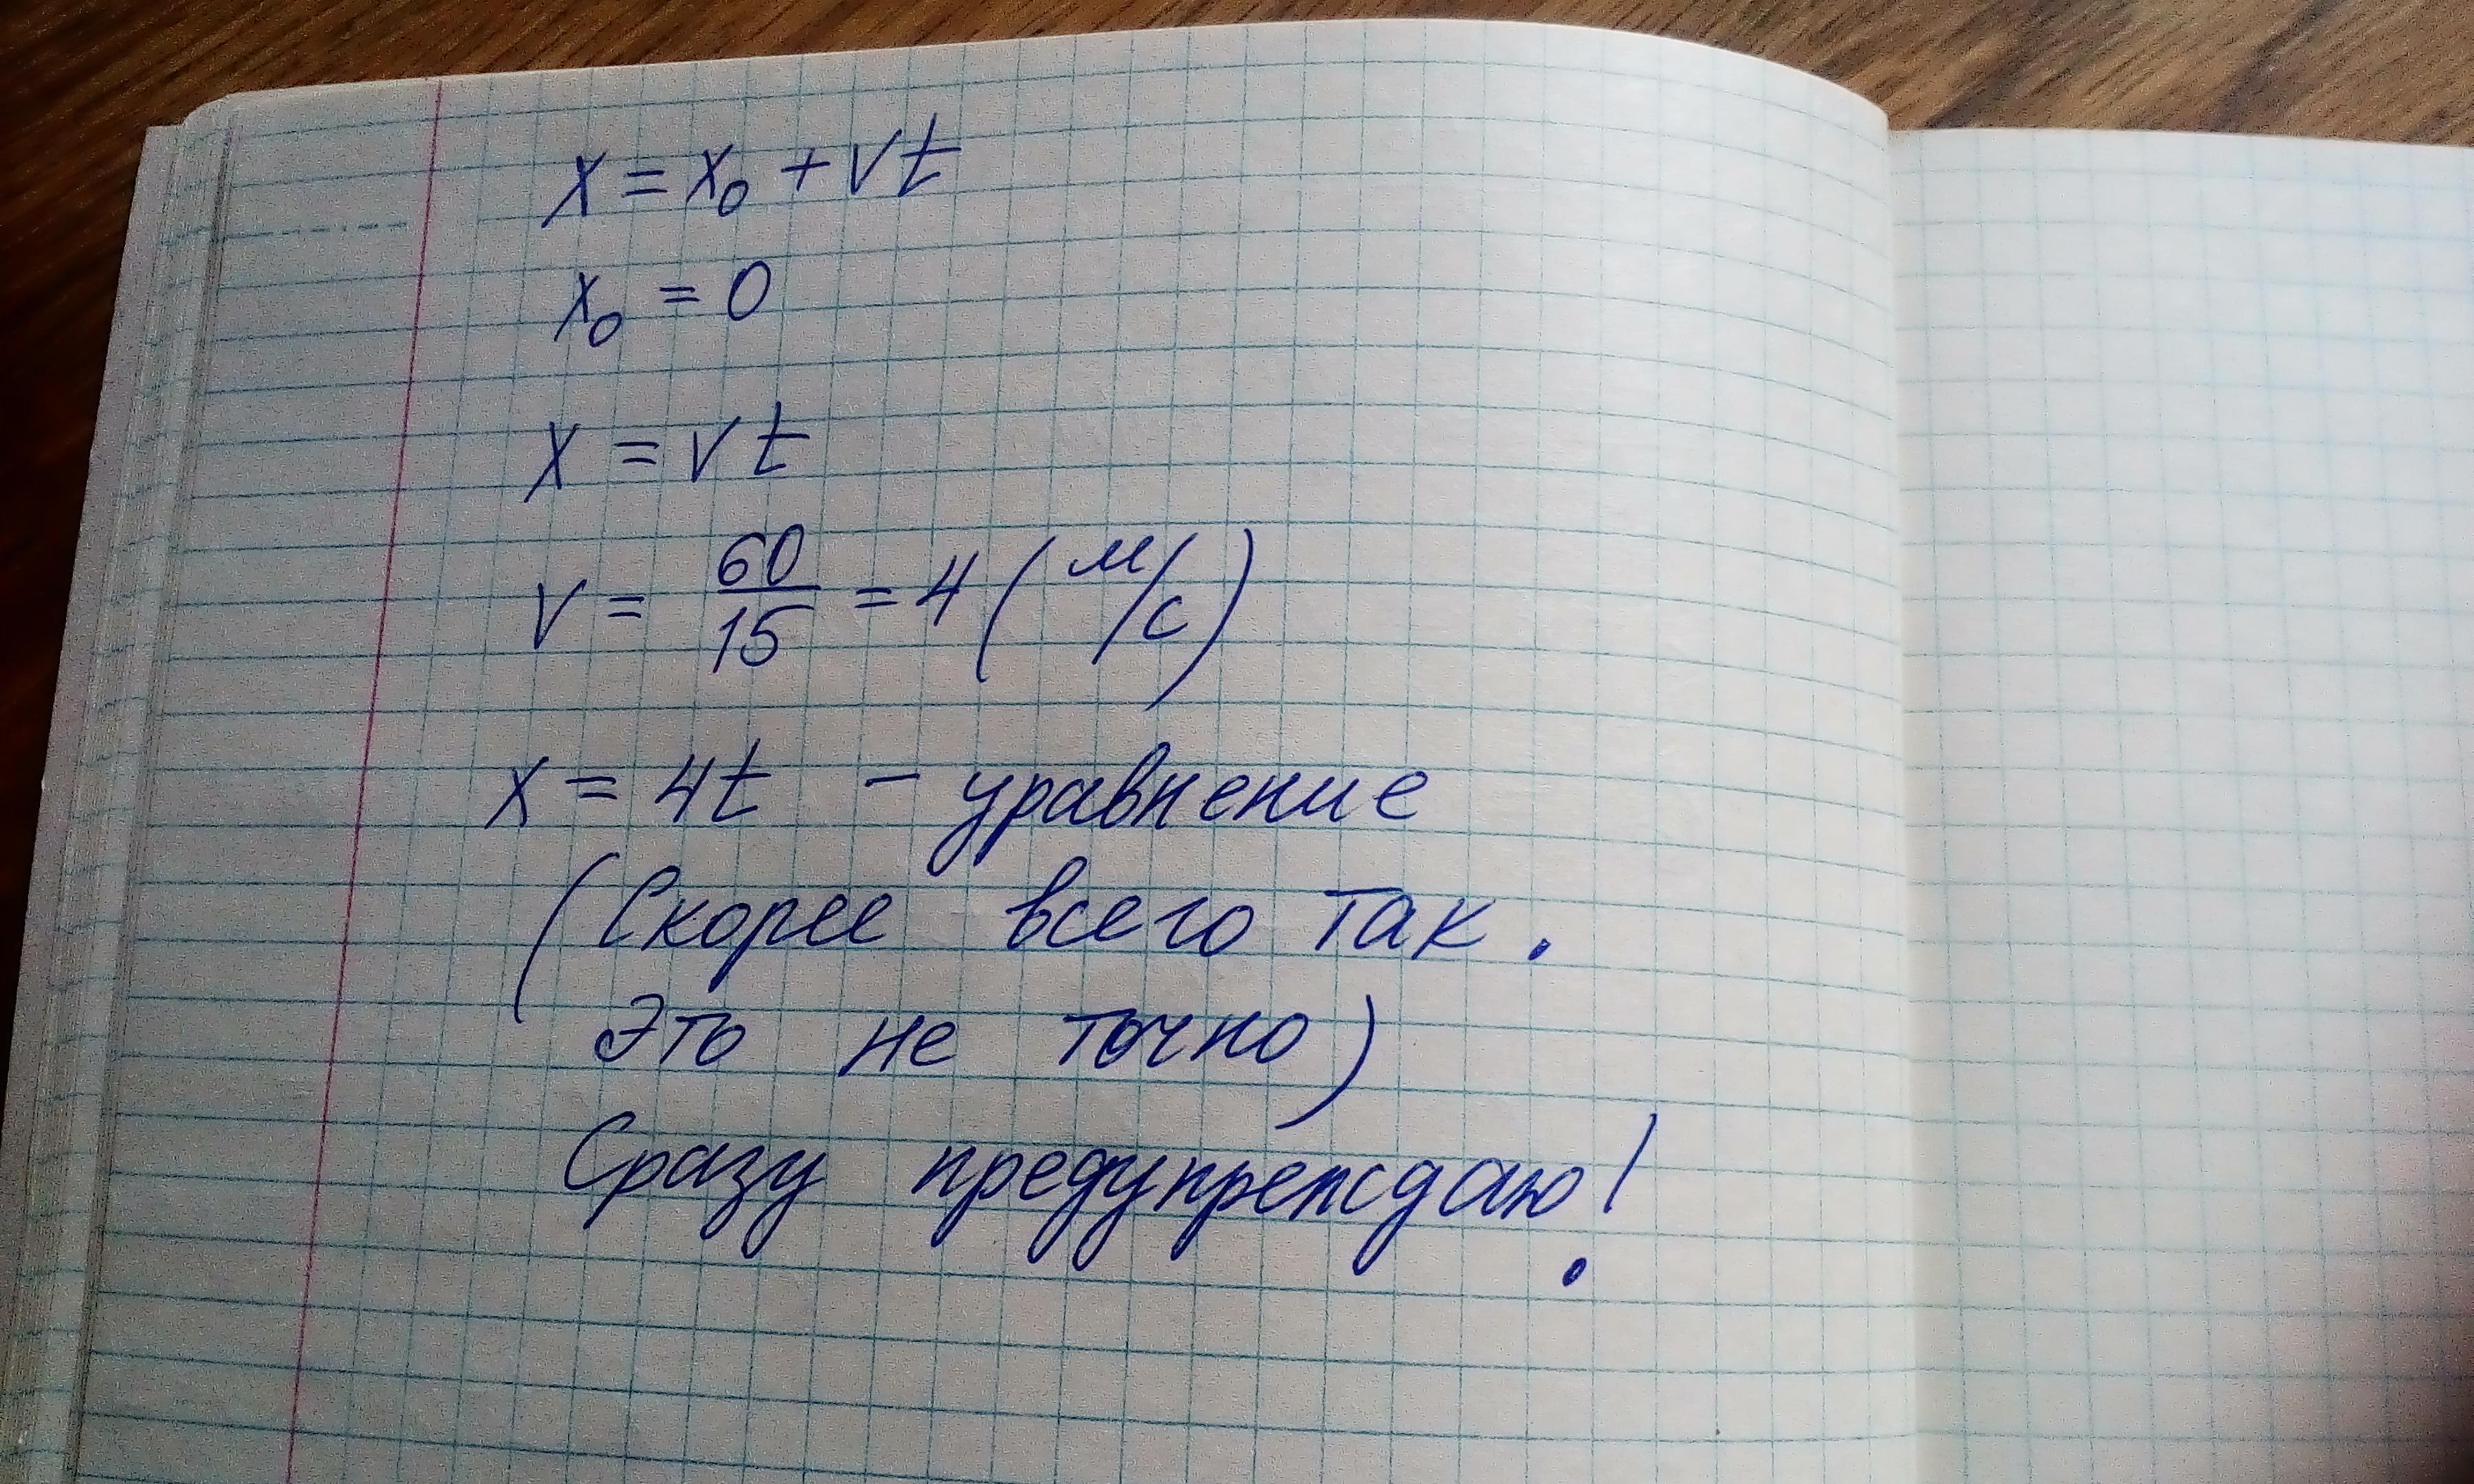 x = x₀ + vt
x₀ = 0
x = vt
v = 60/15 = 4 (м/с)
x = 4t - уравнение
(Скорее всего так.
Это не точно)
Сразу предупреждаю!